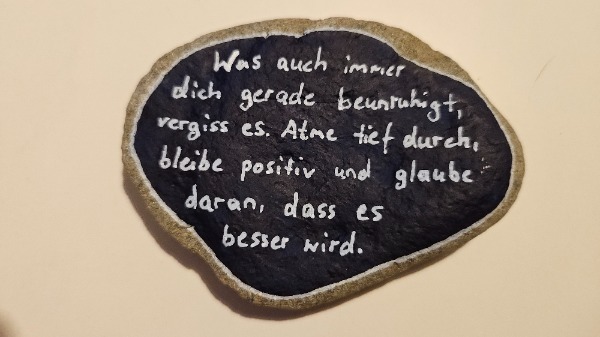 Was auch immer
dich gerade beunruhigt,
vergiss es. Atme tief durch,
bleibe positiv und glaube
daran, dass es
besser wird.